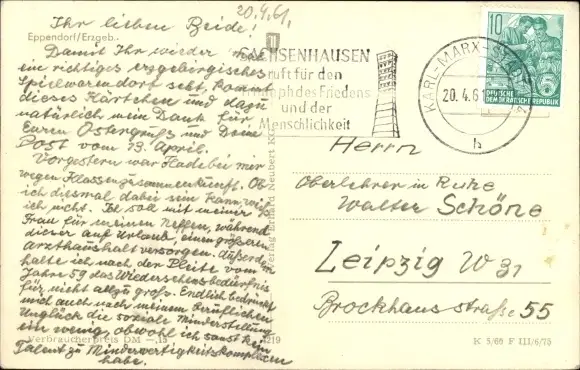 20.4.61.
Ihr lieben Beide!
Eppendorf/Erzgeb.
Damit Ihr wieder mal
ein richtiges erzgebirgisches
Spielwarendorf seht, kommt
dieses Kärtchen und dazu
natürlich mein Dank für
Euren Ostergruß und Deine
Post vom 13. April.
Vorgestern war Hade bei mir
wegen Klassenzusammenkunft. Ob
ich diesmal dabei sein kann, weiß
ich nicht. Ich soll mit meiner
Frau für meinen Neffen, während
dieser auf Urlaub, einen größeren
Arzthaushalt versorgen. Außerdem
halte ich nach der Pleite vom
Jahre 59 das Wiedersehensbedürfnis
für nicht allzu groß. Endlich bedrückt
mich auch nach meinem beruflichen
Unglück die soziale Minderstellung
ein wenig, obwohl ich sonst kein
Talent zu Minderwertigkeitskomplexen
habe.
Verbraucherpreis DM —,15
4219
Verlag Erhard Neubert K
SACHSENHAUSEN
ruft für den
Triumph des Friedens
und der
Menschlichkeit
KARL-MARX-STADT
20.4.6
h
10
DEUTSCHE
DEMOKRATISCHE REPUBLIK
Herrn
Oberlehrer in Ruhe
Walter Schöne
Leipzig W 31
Brockhausstraße 55
K 5/60 F III/6/75